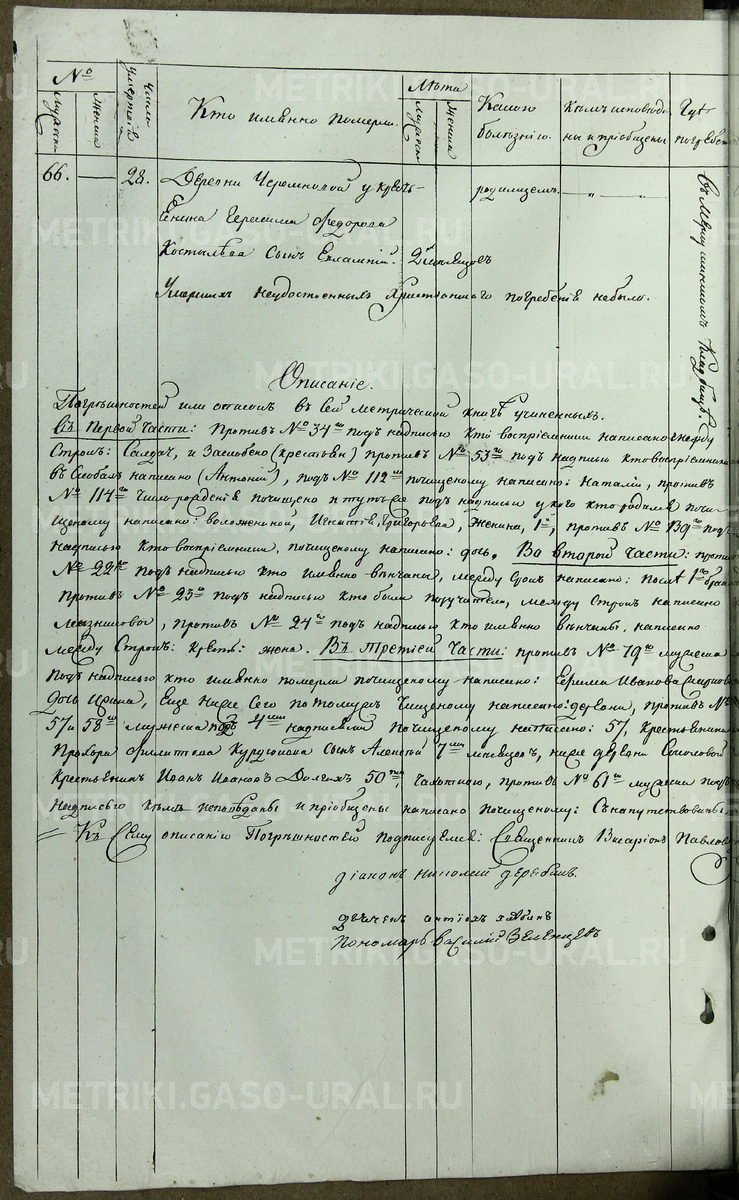 №
Числа умертвiя
Кто именно померъ.
Лѣта
Какою болѣзнiю.
Кѣмъ исповѣд
ны и приобщены
Гдѣ погребен
66. — 28. Деревни Черемновой у крестъ- родимцемъ. — „ — „
янина Герасима Федорова
Костылева Сынъ Евлампiй. 2 месяцовъ
Умершихъ неудостоенныхъ Христианскаго погребенiя небыло.
кладбищѣ.
Описанiе.
Погрѣшностей или описокъ въ сей метрической книгѣ учиненныхъ.
Въ Первой части: Противъ № 34го подъ надписью Кто восприемники написано между
Строкъ: и Заслобево (крестьян) противъ № 53го подъ надписью Кто восприемники
въ написано (Антонiй), подъ № 112м почищеному написано: Наталiи, противъ
№ 114го число рожденiя почищено и тутъ же подъ надписью у кого кто родился почи-
щеному написано: Игнатiя Григорьева, женина, 1й, противъ № 139го подъ
надписью Кто восприемники, почищеному написано: дочь. Во второй части: противъ
№ 22го подъ надписью кто имянно вѣнчаны, между строкъ написано: послѣ 1го брака
противъ № 23го подъ надписью кто были поручители, между Строкъ написано
противъ № 24го подъ надписью кто именно вѣнчаны, написано
между Строкъ: крест: жена. Въ третiей части: противъ № 19го мужеска
подъ надписью кто именно померъ почищеному написано: Ефима Иванова
дочь Ирина, Еще ниже сего потомужъ чищеному написано: деревни, противъ №
57 и 58го мужеска подъ 4ми надписями почищеному написано: 57, крестьянина
Прохора Филиппова Сынъ Алексей 7ми месяцовъ, ниже деревни Соколовой
крестьянинъ Иоанъ Иоановъ Долгихъ 50ти, Чахоткою, противъ № 61го мужеска подъ
надписью кѣмъ исповѣданы и прiобщены написано почищеному:
= Къ Сему описанiю Погрѣшностей подписуемся: Священникъ Висарiонъ Павловъ
дiаконъ николай дерябинъ.
дьячекъ антiохъ
Пономарь василiй Зеленцовъ
METRIKI.GASO-URAL.RU